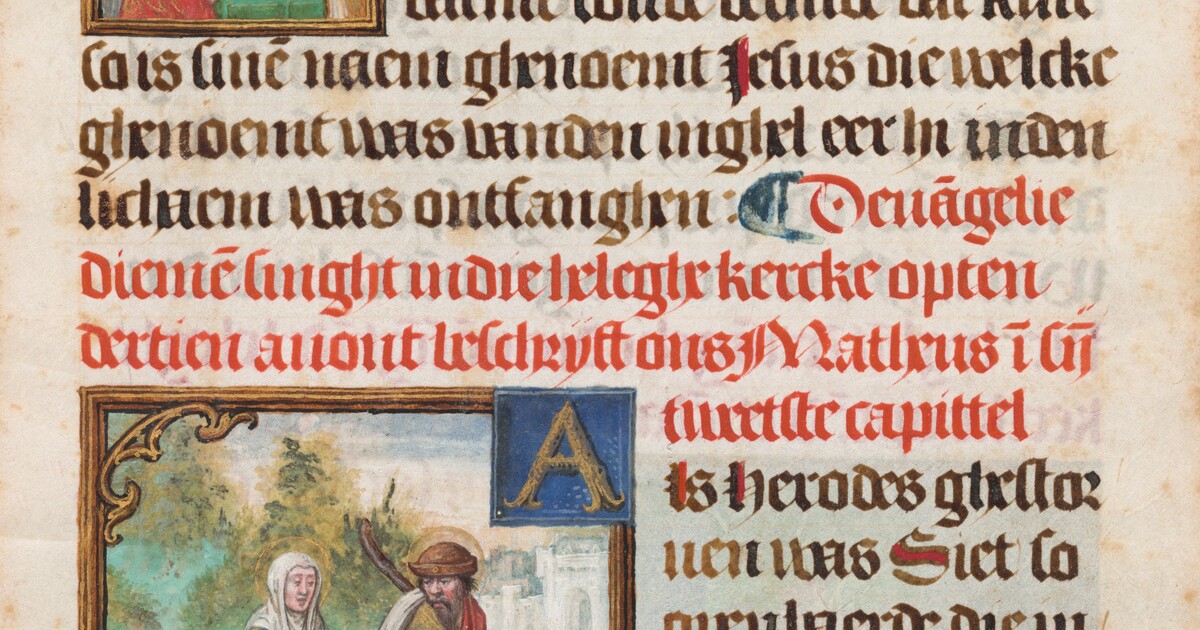 so is sinē naem ghenoemt Jesus die welcke
ghenoemt was vanden inghel eer hi inden
lichaem was ontfanghen : ¶ Devāgelie
diemē singht in die heleghe kercke opten
dertien avont beschrijft ons Matheus ī sijn
tweetste capittel
A
ls herodes ghestor
ven was Siet so